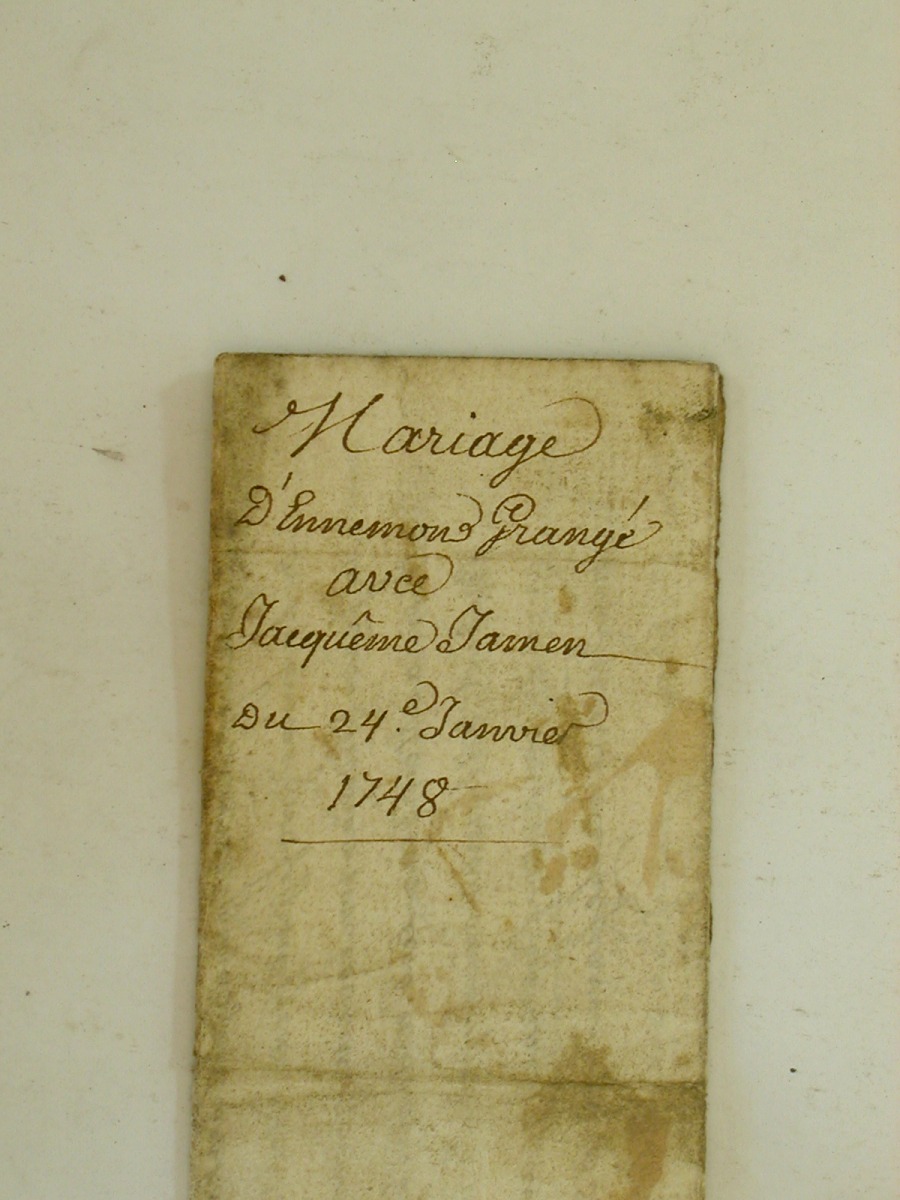 Mariage
D'Ennemond Grangé
avec
Jacquême Jamen
Du 24.e Janvier
1748